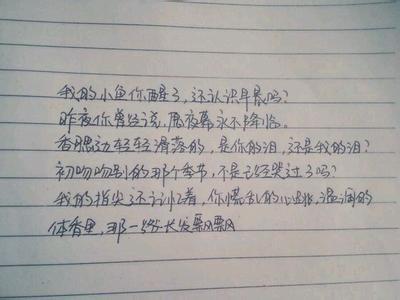 我的小鱼你醒了，还认识早晨吗？
昨夜你曾经说，愿夜幕永不降临。
香腮边轻轻滑落的，是你的泪，还是我的泪？
初吻吻别的那个季节，不是已经哭过了吗？
我的指尖还记忆着，你慌乱的心跳，温润的
体香里，那一缕长发飘飘